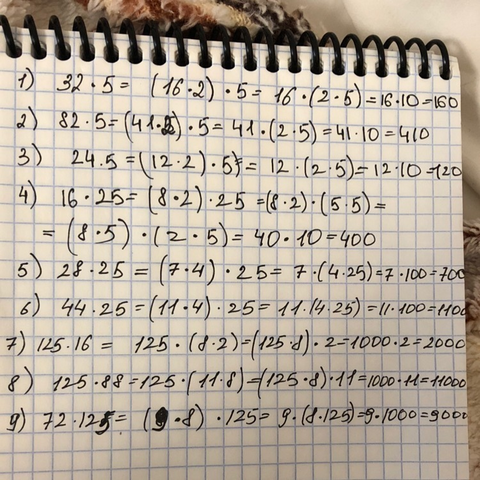 1) 32 · 5 = (16 · 2) · 5 = 16 · (2 · 5) = 16 · 10 = 160
2) 82 · 5 = (41 · 2) · 5 = 41 · (2 · 5) = 41 · 10 = 410
3) 24 · 5 = (12 · 2) · 5) = 12 · (2 · 5) = 12 · 10 = 120
4) 16 · 25 = (8 · 2) · 25 = (8 · 2) · (5 · 5) =
= (8 · 5) · (2 · 5) = 40 · 10 = 400
5) 28 · 25 = (7 · 4) · 25 = 7 · (4 · 25) = 7 · 100 = 700
6) 44 · 25 = (11 · 4) · 25 = 11 · (4 · 25) = 11 · 100 = 1100
7) 125 · 16 = 125 · (8 · 2) = (125 · 8) · 2 = 1000 · 2 = 2000
8) 125 · 88 = 125 · (11 · 8) = (125 · 8) · 11 = 1000 · 11 = 11000
9) 72 · 125 = (9 · 8) · 125 = 9 · (8 · 125) = 9 · 1000 = 9000